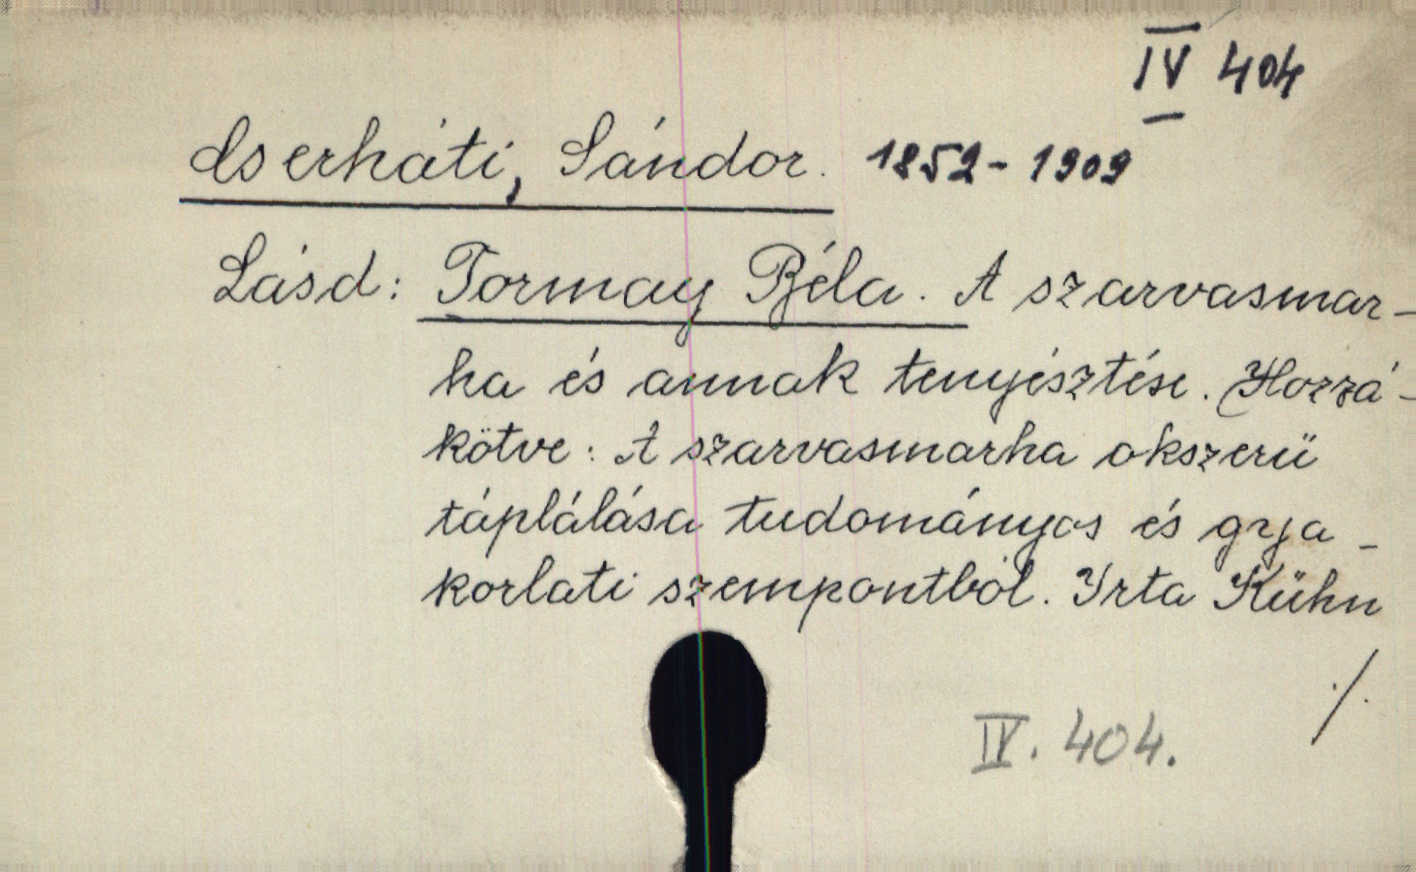 IV 404
Cserháti, Sándor. 1852-1909
Lásd: Tormay Béla. A szarvasmar-
ha és annak tenyésztése. (Hozzá-
kötve: A szarvasmarha okszerü
táplálása tudományos és gya-
korlati szempontból. Irta Kühn
./.
IV. 404.